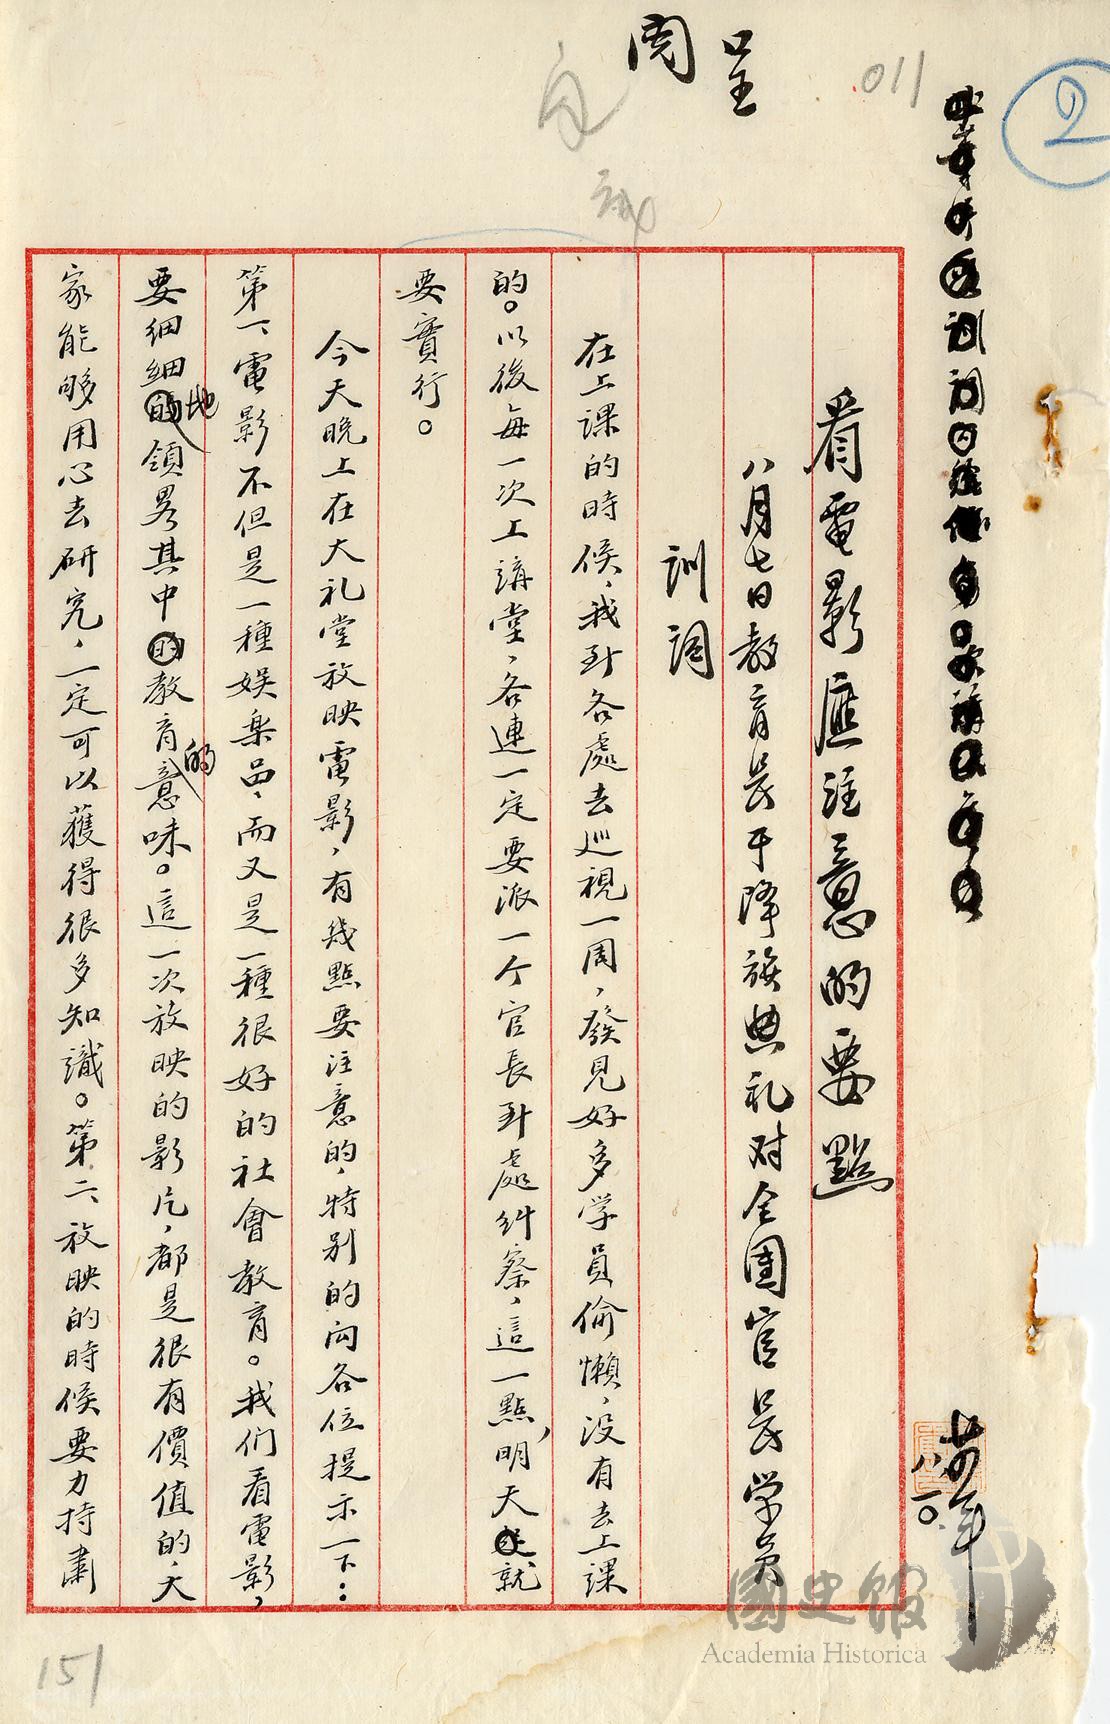 呈
閱
011
2
看電影應注意的要點
八月七日教育長于降旗典礼对全團官長学員
訓詞
在上課的時候，我到各處去巡視一周，發見好多学員偷懶，没有去上課
的。以後每一次上講堂，各連一定要派一个官長到處糾察，這一點，明天就
要實行。
今天晚上在大礼堂放映電影，有幾點要注意的，特别的向各位提示一下：
第一、電影不但是一種娱楽品，而又是一種很好的社會教育。我们看電影，
要細細地領畧其中教育的意味。這一次放映的影片，都是很有價值的，大
家能够用心去研究，一定可以獲得很多知識。第二、放映的時候要力持肅
八、一〇
151
國史館
Academia Historica